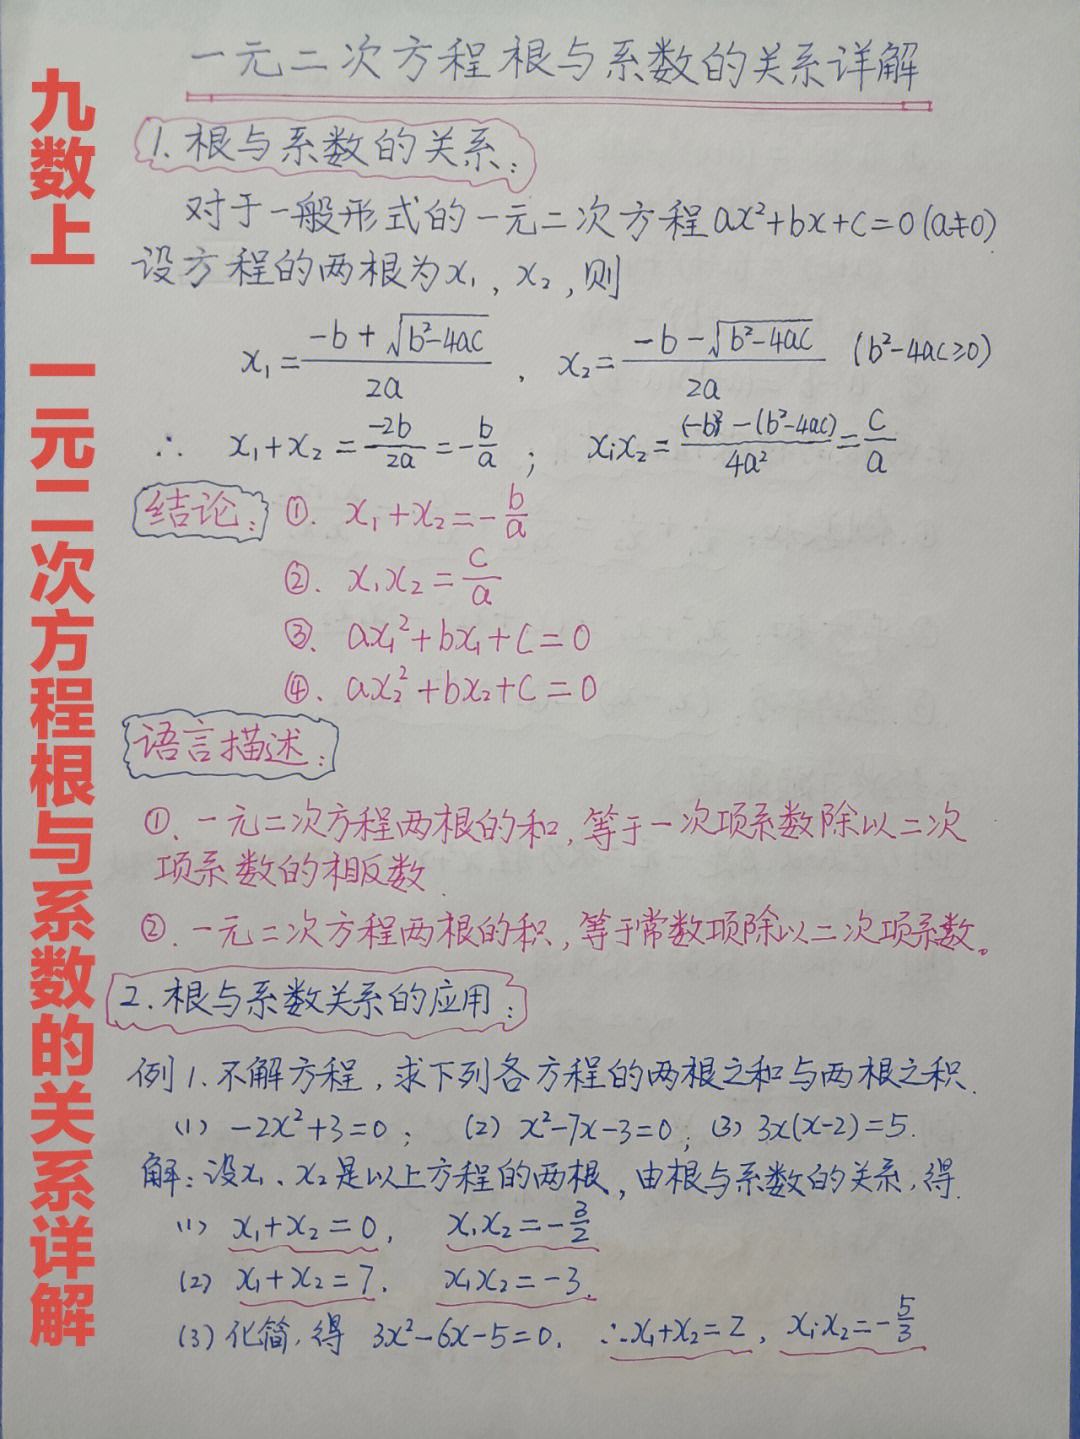 九数上 一元二次方程根与系数的关系详解
一元二次方程根与系数的关系详解
1.根与系数的关系:
对于一般形式的一元二次方程ax²+bx+c=0(a≠0)
设方程的两根为x₁,x₂,则
x₁=(-b+√(b²-4ac))/2a , x₂=(-b-√(b²-4ac))/2a (b²-4ac≥0)
∴ x₁+x₂=-2b/2a=-b/a ; x₁·x₂=((-b)²-(b²-4ac))/4a²=c/a
结论: ①. x₁+x₂=-b/a
②. x₁x₂=c/a
③. ax₁²+bx₁+c=0
④. ax₂²+bx₂+c=0
语言描述:
①.一元二次方程两根的和,等于一次项系数除以二次
项系数的相反数.
②.一元二次方程两根的积,等于常数项除以二次项系数。
2.根与系数关系的应用:
例1.不解方程,求下列各方程的两根之和与两根之积.
(1) -2x²+3=0; (2) x²-7x-3=0; (3) 3x(x-2)=5.
解:设x₁、x₂是以上方程的两根,由根与系数的关系,得.
(1) x₁+x₂=0, x₁x₂=-3/2
(2) x₁+x₂=7, x₁x₂=-3.
(3) 化简,得 3x²-6x-5=0. ∴x₁+x₂=2, x₁·x₂=-5/3